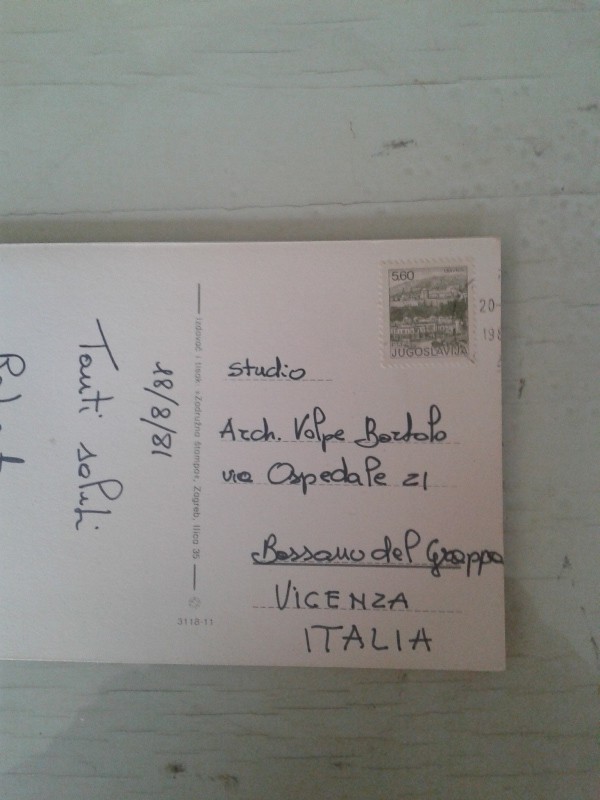 18/8/81
Tanti saluti
Izdavač i tisak »Zadružna štampa«, Zagreb, Ilica 35
3118-11
5.60
JUGOSLAVIJA
20-
198
studio
Arch. Volpe Bortolo
via Ospedale 21
Bassano del Grappa
VICENZA
ITALIA